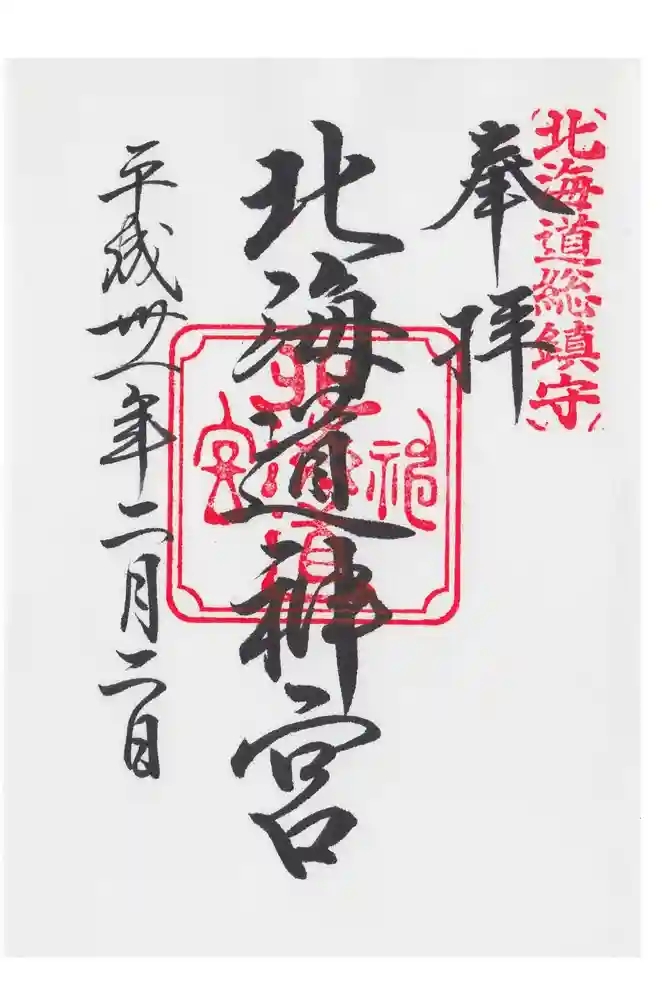 北海道総鎮守
奉拝
北海道神宮
北海道
神
宮
平成卅一年二月二日